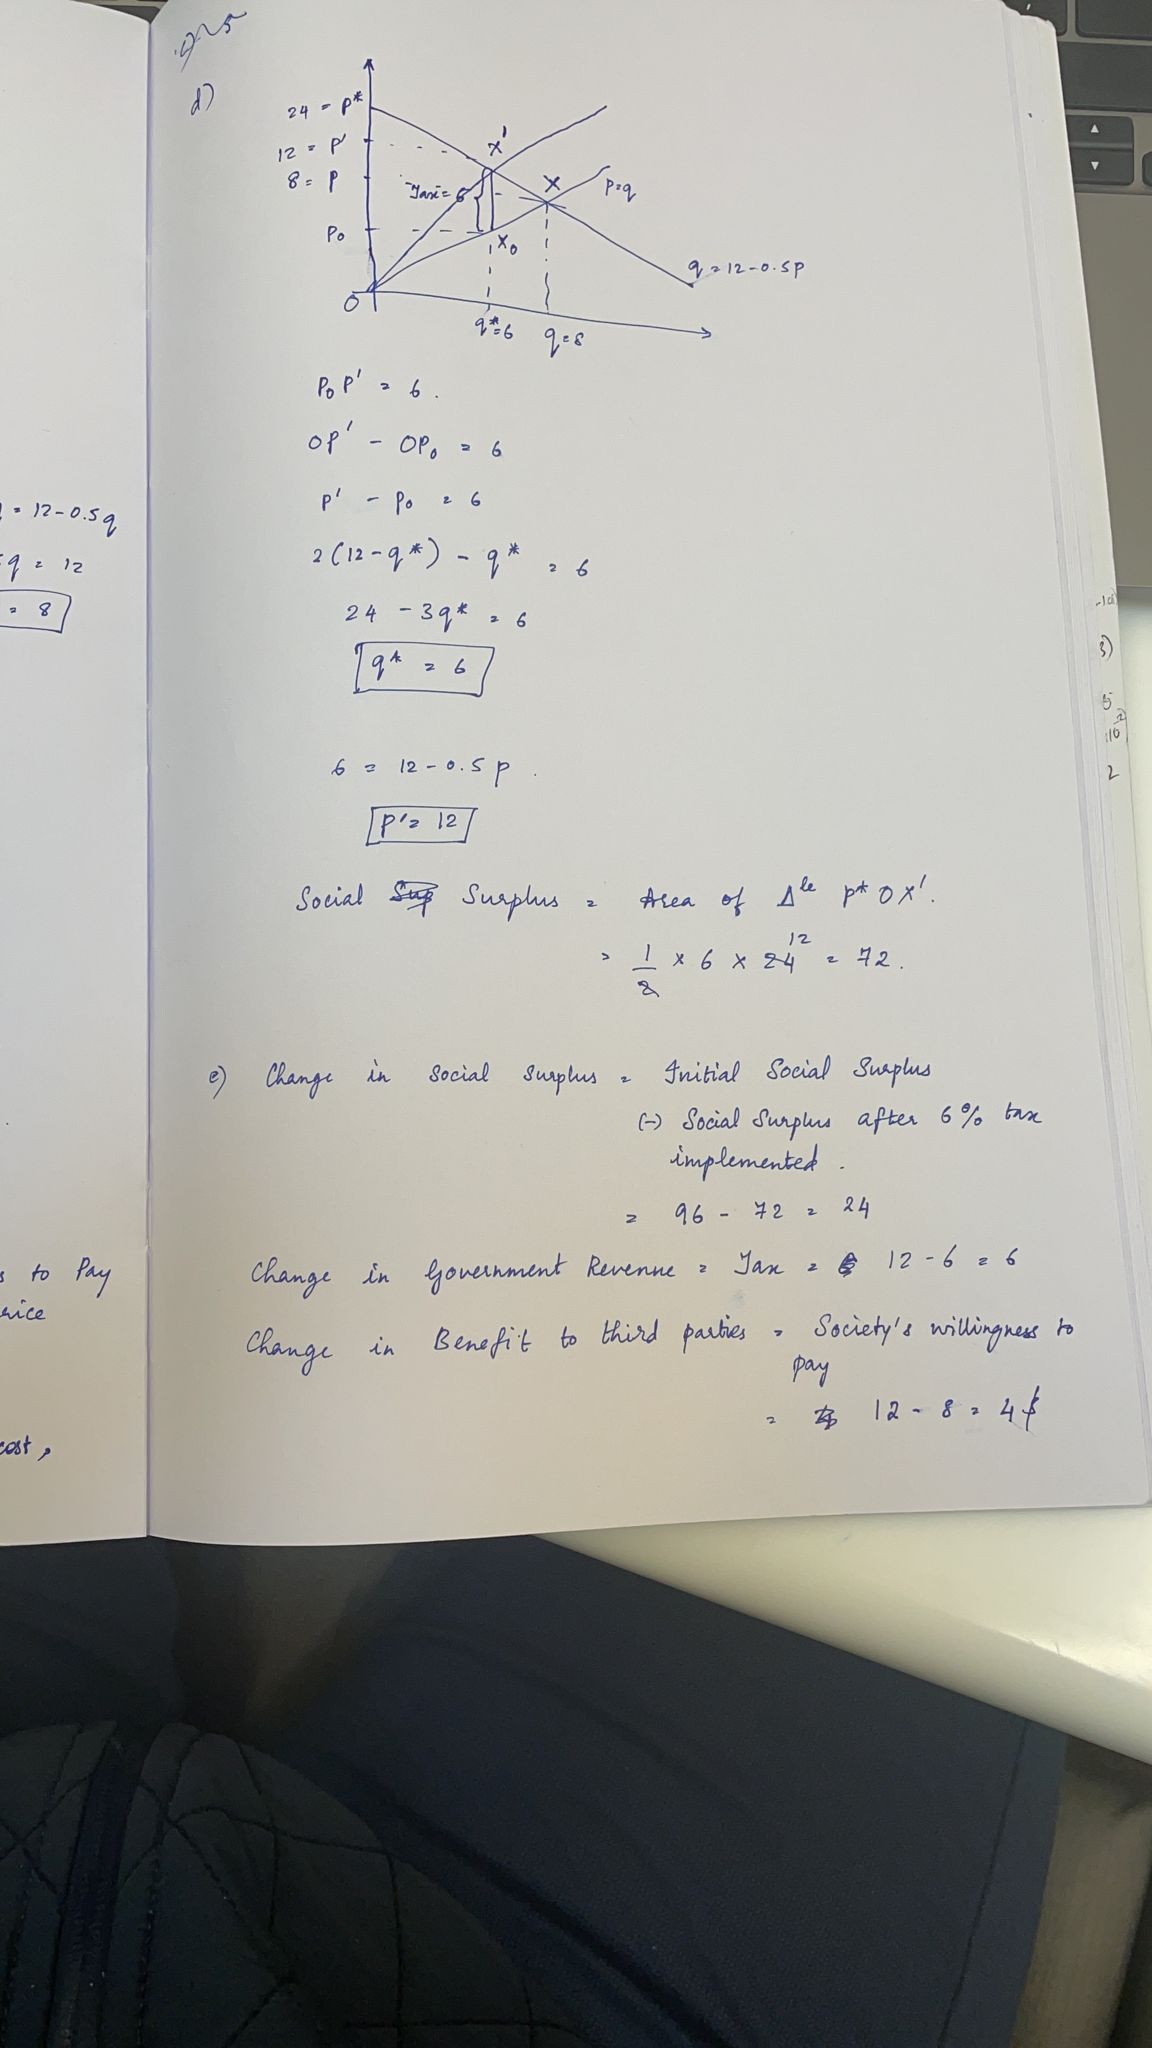 d)
24 = p*
12 = p'
8 = p
P₀
O
Tax = 6
x'
x
x₀
p=q
q = 12-0.5p
q*=6
q=8
P₀P' = 6.
OP' - OP₀ = 6
p' - p₀ = 6
2(12-q*) - q* = 6
24 - 3q* = 6
q* = 6
6 = 12 - 0.5p.
p' = 12
Social Surplus = Area of Δle p*OX'.
= 1/2 × 6 × 24 12 = 72.
e) Change in Social Surplus = Initial Social Surplus
(-) Social Surplus after 6% tax
implemented.
= 96 - 72 = 24
Change in Government Revenue = Tax = 12 - 6 = 6
Change in Benefit to third parties = Society's willingness to
pay
= 12 - 8 = 4$
= 12-0.5q
q = 12
= 8
to Pay
cost,
3)
2